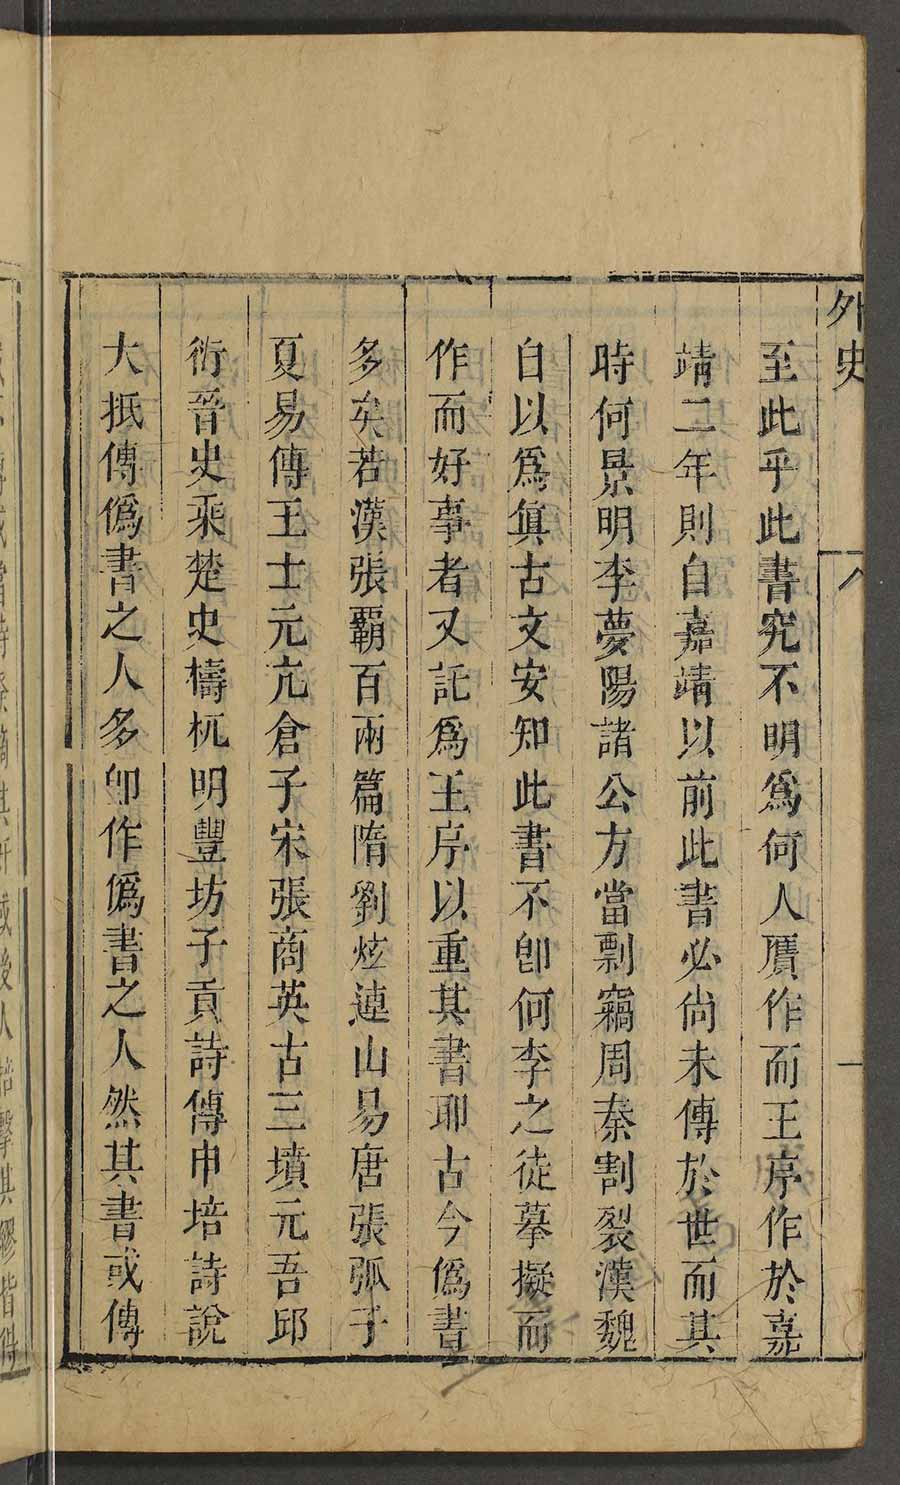 外史
八
一
至此乎此書究不明爲何人贋作而王序作於嘉
靖二年則自嘉靖以前此書必尚未傳於世而其
時何景明李夢陽諸公方當剽竊周秦割裂漢魏
自以爲眞古文安知此書不卽何李之徒摹擬而
作而好事者又託爲王序以重其書耶古今僞書
多矣若漢張霸百兩篇隋劉炫連山易唐張弧子
夏易傳王士元亢倉子宋張商英古三墳元吾邱
衍晉史乘楚史檮杌明豐坊子貢詩傳申培詩說
大抵傳僞書之人多卽作僞書之人然其書或傳